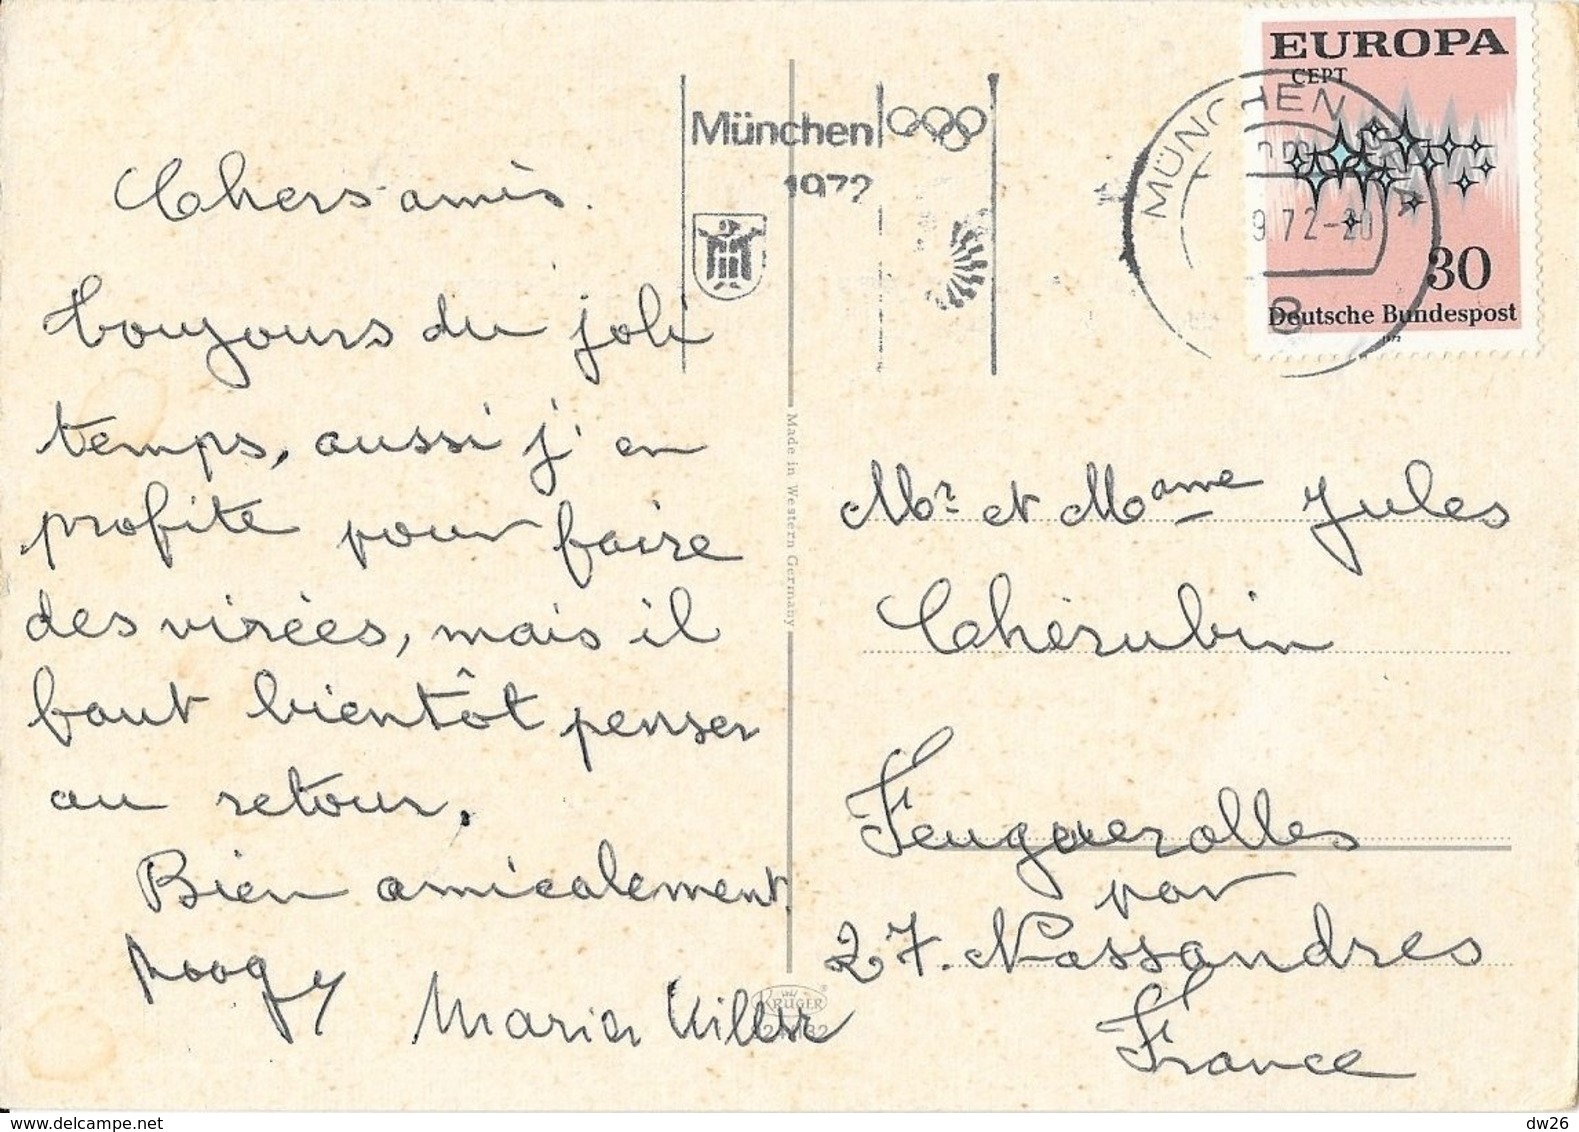 EUROPA
CEPT
30
Deutsche Bundespost
1972
MÜNCHEN
9.72-20
8
München
1972
Chers amis.
Toujours du joli
temps, aussi j'en
profite pour faire
des virées, mais il
faut bientôt penser
au retour.
Bien amicalement
Maria Killer
Made in Western Germany
KRÜGER
Mr. et Mame Jules
Chérubin
Feuguerolles
par
27. Nassandres
France
dw26